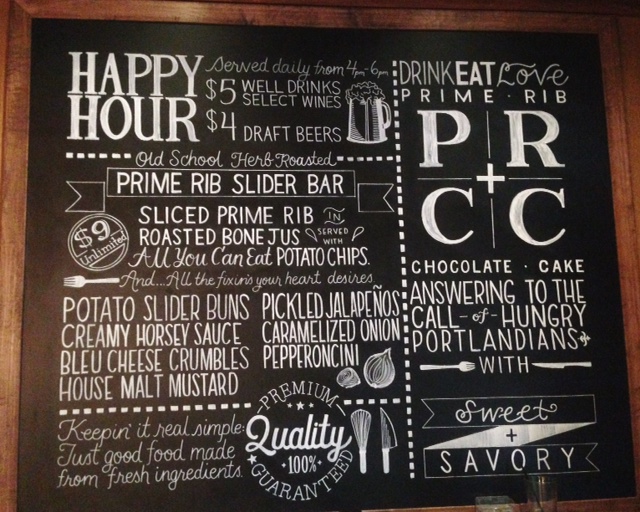 HAPPY HOUR
Served daily from 4pm-6pm
$5 WELL DRINKS
SELECT WINES
$4 DRAFT BEERS
Old School Herb-Roasted
PRIME RIB SLIDER BAR
$9 Unlimited
SLICED PRIME RIB IN
ROASTED BONE JUS SERVED WITH
All You Can Eat POTATO CHIPS.
And...All the fixin's your heart desires.
POTATO SLIDER BUNS
CREAMY HORSEY SAUCE
BLEU CHEESE CRUMBLES
HOUSE MALT MUSTARD
PICKLED JALAPEÑOS
CARAMELIZED ONION
PEPPERONCINI
Keepin' it real simple:
Just good food made
from fresh ingredients.
PREMIUM
Quality
100%
GUARANTEED
DRINK EAT Love
PRIME · RIB
P R
+
C C
CHOCOLATE · CAKE
ANSWERING TO THE
CALL -of- HUNGRY
PORTLANDIANS
WITH
Sweet
+
SAVORY